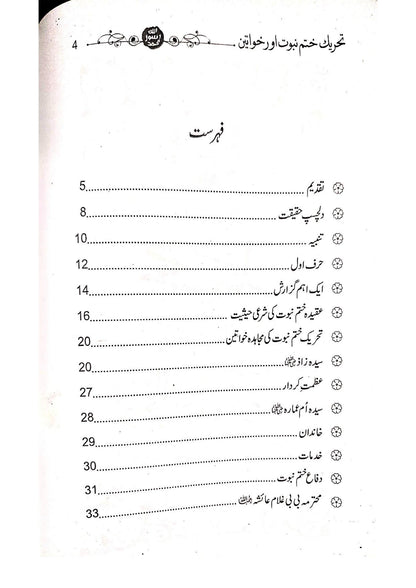 تحریک ختم نبوت اور خواتین 4
اللہ رسول محمد
فہرست
تقدیم 5
دلچسپ حقیقت 8
تنبیہ 10
حرف اول 12
ایک اہم گزارش 14
عقیدہ ختم نبوت کی شرعی حیثیت 16
تحریک ختم نبوت کی مجاہدہ خواتین 20
سیدہ زاذ 20
عظمت کردار 27
سیدہ اُم عمارہ 28
خاندان 29
خدمات 30
دفاع ختم نبوت 31
محترمہ بی بی غلام عائشہ 33